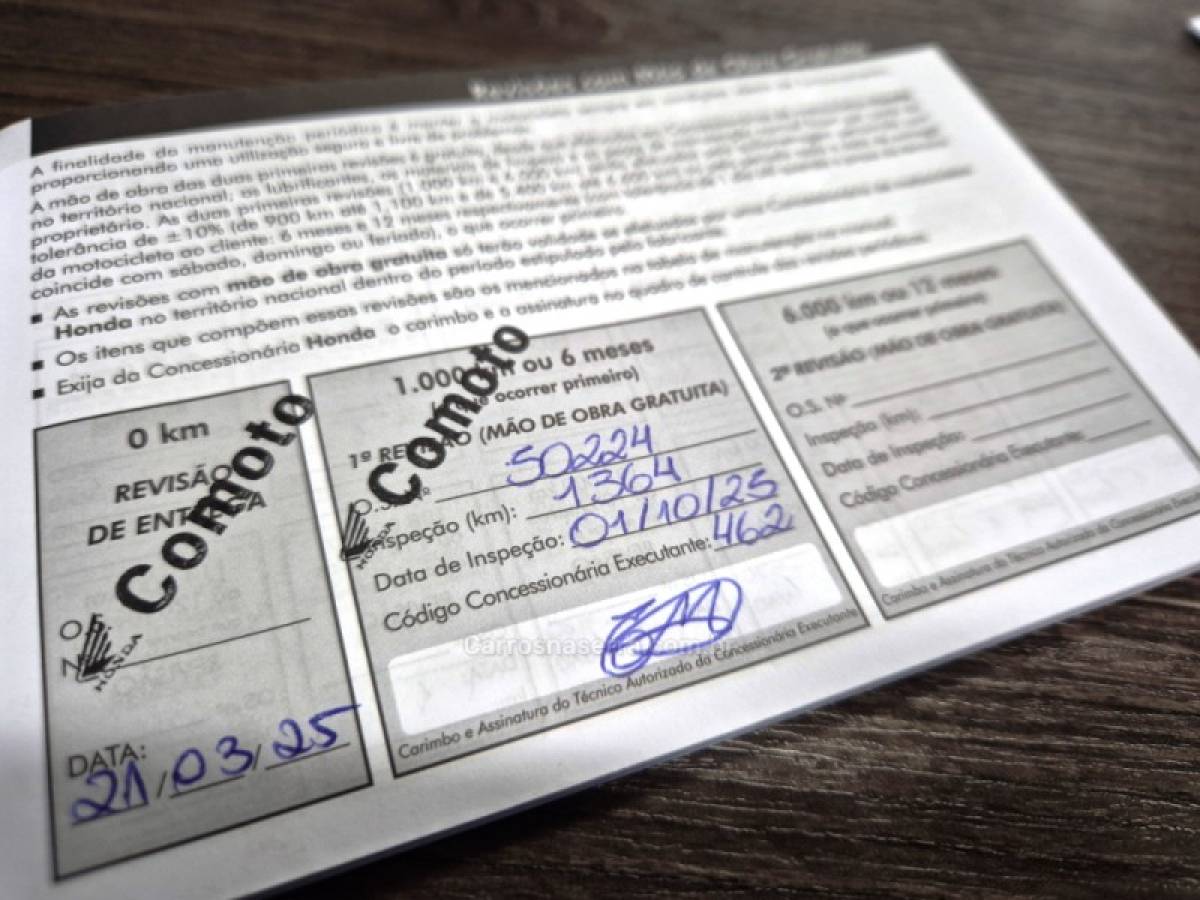 Revisões com Mão de Obra Gratuita
A finalidade da manutenção periódica é manter a
proporcionando uma utilização segura e livre de problemas.
A mão de obra das duas primeiras revisões é gratuita, desde que
no território nacional; os lubrificantes, os materiais de
proprietário. As duas primeiras revisões (1.000 km e 6.000 km)
tolerância de ±10% (de 900 km até 1.100 km e de 5.400 km até 6.600 km)
da motocicleta ao cliente: 6 meses e 12 meses respectivamente
coincide com sábado, domingo ou feriado), o que ocorrer primeiro.
▪ As revisões com mão de obra gratuita só terão validade se efetuadas por uma Concessionária
Honda no território nacional dentro do período estipulado pelo fabricante.
▪ Os itens que compõem essas revisões são os mencionados na tabela de manutenção
▪ Exija da Concessionária Honda o carimbo e a assinatura no quadro de controle das revisões periódicas.
0 km
REVISÃO
DE ENTREGA
Comoto
HONDA
DATA:
21/03/25
1.000 km ou 6 meses
ocorrer primeiro)
1ª REVISÃO (MÃO DE OBRA GRATUITA)
Comoto
HONDA
O.S. Nº 50224
Inspeção (km): 1364
Data de Inspeção: 01/10/25
Código Concessionária Executante: 462
Carimbo e Assinatura do Técnico Autorizado da Concessionária Executante
6.000 km ou 12 meses
(o que ocorrer primeiro)
2ª REVISÃO (MÃO DE OBRA GRATUITA)
O.S. Nº
Inspeção (km):
Data de Inspeção:
Código Concessionária Executante:
Carimbo e Assinatura do Técnico Autorizado da Concessionária Executante